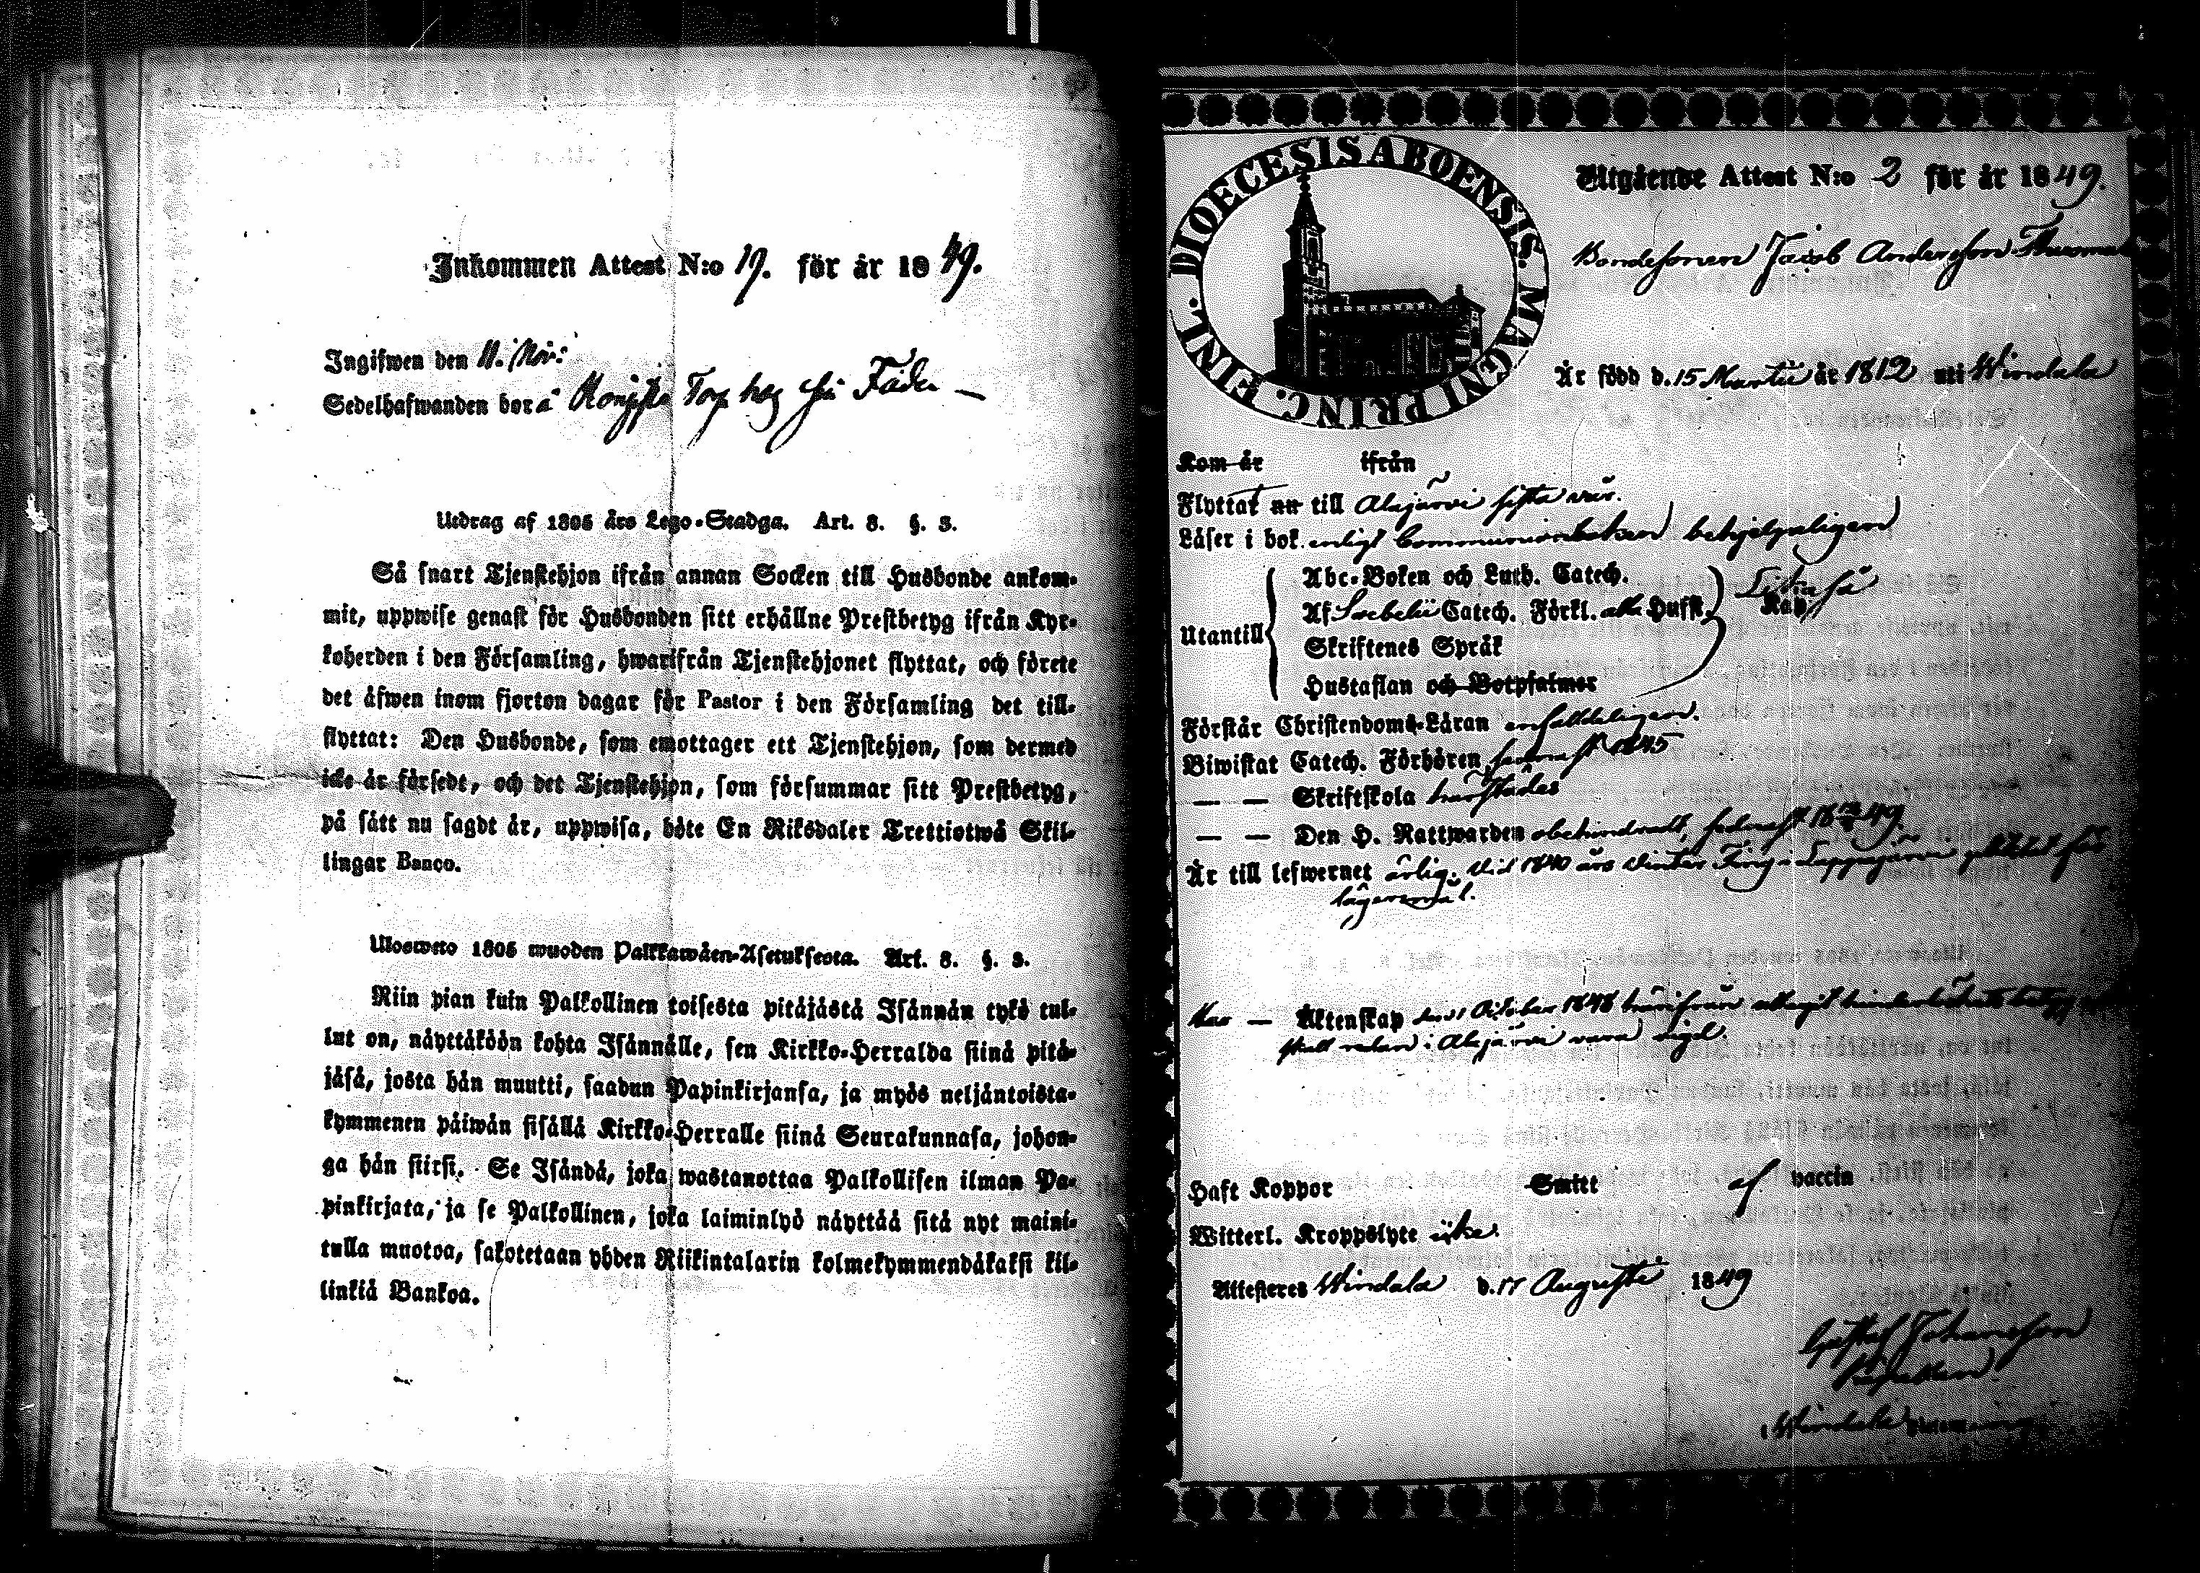 Inkommen Attest N:o 19. för år 1849.
Ingifwen den 11. Nov:
Sedelhafwanden bor å Torp hos sin Fader —
Utdrag af 1805 års Lego-Stadga. Art. 3. §. 3.
Så snart Tjenstehjon ifrån annan Socken till Husbonde ankom-
mit, uppwise genast för Husbonden sitt erhållne Prestbetyg ifrån Kyr-
koherden i den Församling, hwarifrån Tjenstehjonet flyttat, och förete
det äfwen inom fjorton dagar för Pastor i den Församling det till-
flyttat: Den Husbonde, som emottager ett Tjenstehjon, som dermed
icke är försedt, och det Tjenstehjon, som försummar sitt Prestbetyg,
på sätt nu sagdt är, uppwisa, böte En Riksdaler Trettiotwå Skil-
lingar Banco.
Ulosweto 1805 wuoden Palkkawäen-Asetuksesta. Art. 3. §. 3.
Niin pian kuin Palkollinen toisesta pitäjästä Isännän tykö tul-
lut on, näyttäköön kohta Isännälle, sen Kirkko-Herralda siinä pitä-
jäsä, josta hän muutti, saadun Papinkirjansa, ja myös neljäntoista-
kymmenen päiwän sisällä Kirkko-Herralle siinä Seurakunnasa, johon-
ga hän siirsi. Se Isändä, joka wastanottaa Palkollisen ilman Pa-
pinkirjata, ja se Palkollinen, joka laiminlyö näyttää sitä nyt maini-
tulla muotoa, sakotetaan yhden Riikintalarin kolmekymmendäkaksi kil-
linkiä Bankoa.
DIOECESIS ABOENSIS. MAGNI PRINC. FINL.
Utgående Attest N:o 2 för år 1849.
Bondesonen Jacob Andersson
Är född d. 15 Martii år 1812 uti Windala
Kom år ifrån
Flyttat nu till Alajärvi sista vår.
Läser i bok enligt Communionboken behjelpeligen
Abc-Boken och Luth. Catech.
Af Sebelii Catech. Förkl. alla Hufst. Kap
Utantill
Skriftenes Språk
Hustaflan och Botpsalmer
Förstår Christendoms-Läran enfaldeligen.
Biwistat Catech. Förhören senast 1845
— — Skriftskola härstädes
— — Den H. Nattwarden obehindradt, sednast 1849
Är till lefwernet ärlig. Vid 1840 års Vinter Ting i Lappajärvi pliktat för
lägersmål.
Äktenskap den 1 October 1848 härifrån uttagit hinderlöshets betyg
skall redan i Alajärvi vara vigd.
Haft Koppor Smitt af vaccin
Witterl. Kroppslyte icke.
Attesteres Windala d. 17 Augusti 1849
Gustaf Johansson
Windala